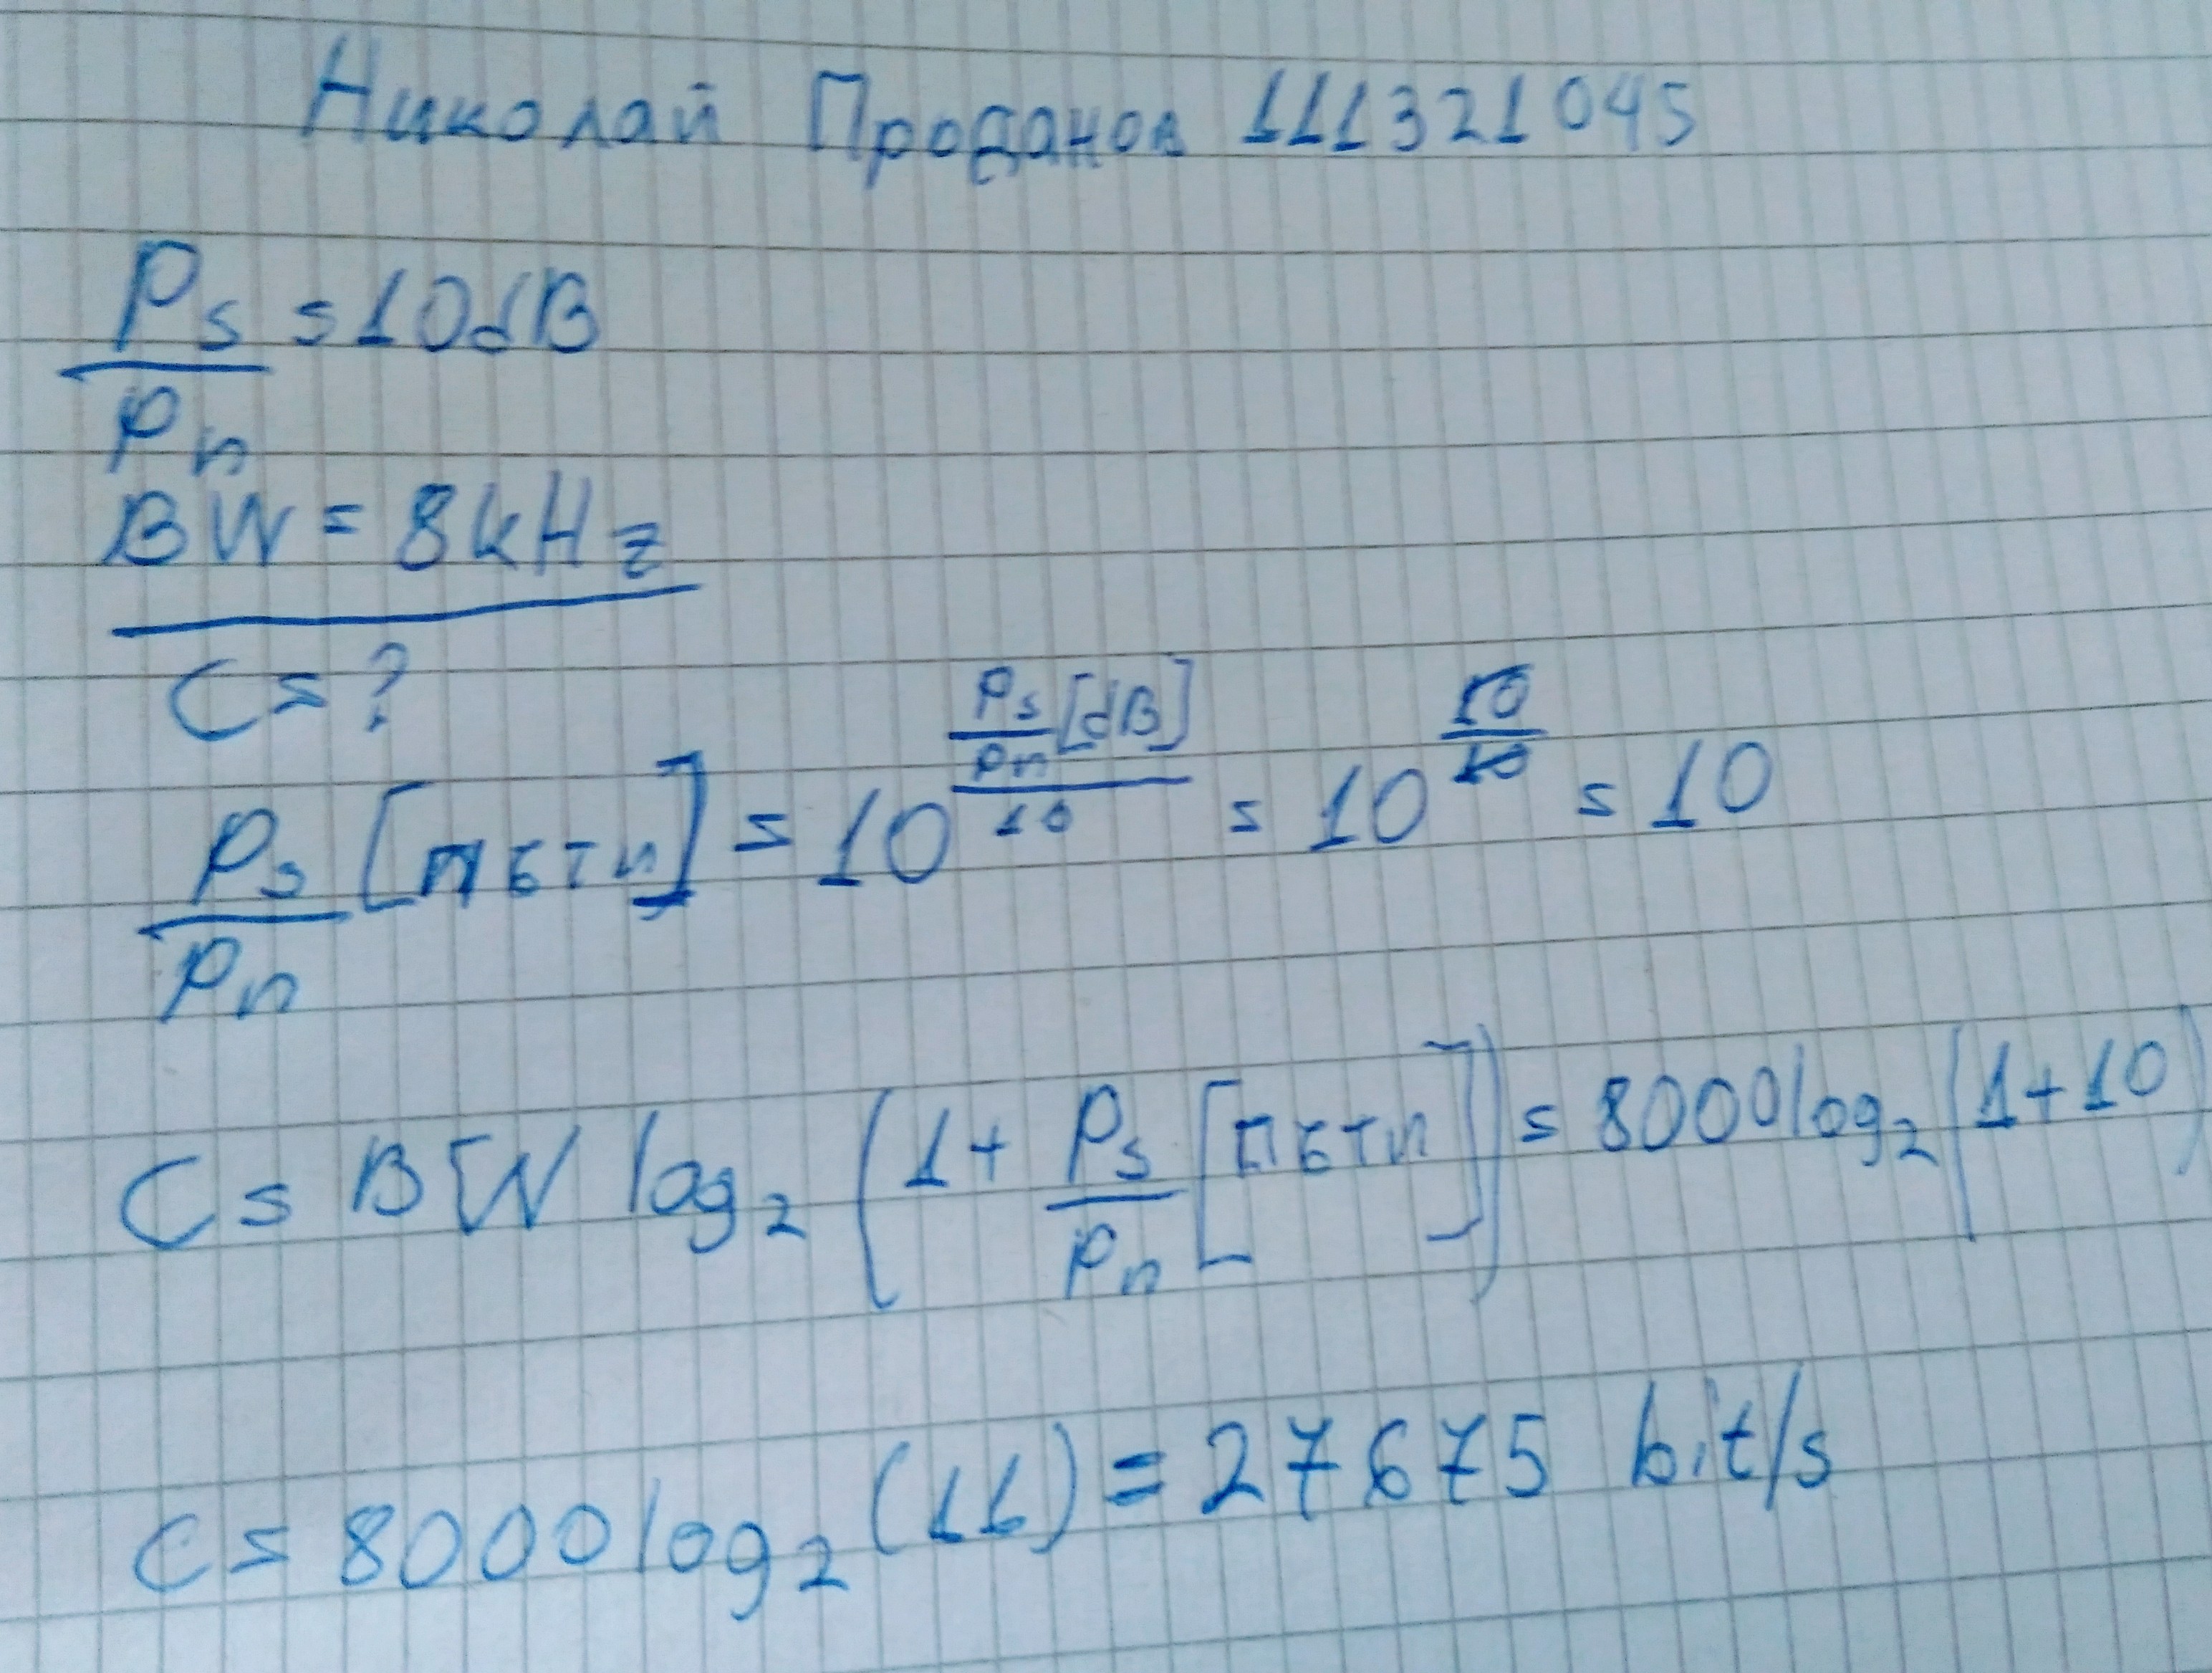 Николай Проданов 111321045
Ps/Pn = 10dB
BW = 8kHz
C = ?
Ps/Pn [пъти] = 10^(Ps/Pn[dB]/10) = 10^(10/10) = 10
C = BW log₂ (1 + Ps/Pn [пъти]) = 8000 log₂ (1+10)
C = 8000 log₂ (11) = 27675 bit/s